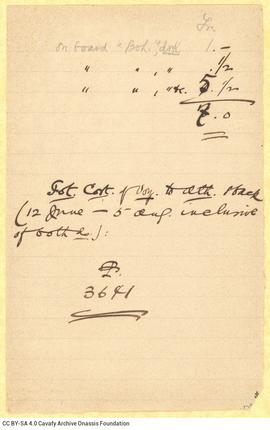 Fr.
on board "Boh.", drk 1.-
" " , " . 1/2
" " , "&c. 5. 1/2
7.0
Tot. Cost. of Voy. to Ath. & back
(12 June – 5 Aug. inclusive
of both ds.):
P.
3641
CC BY-SA 4.0 Cavafy Archive Onassis Foundation